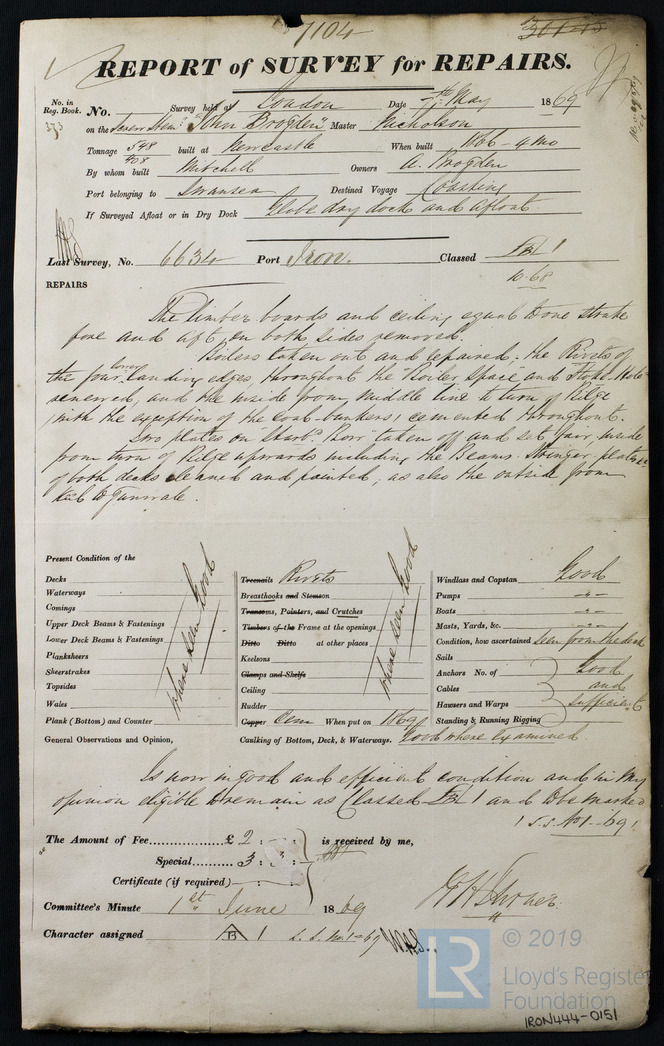 7104
REPORT of SURVEY for REPAIRS.
No. in Reg. Book.
373
No. Survey held at London Date 7th May 1869
on the Screw Steamr "John Brogden" Master Nicholson
Tonnage 548 built at Newcastle When built 1866 - 4 mo
408
By whom built Mitchell Owners A. Brogden
Port belonging to Swansea Destined Voyage Coasting
If Surveyed Afloat or in Dry Dock Globe dry dock and afloat
Last Survey, No. 6634 Port Iron. Classed B 1
10-68
REPAIRS
The timber boards and ceiling equal to one strake
fore and aft, on both sides removed.
Boilers taken out and repaired: the Rivets of
the four lower landing edges, throughout the Boiler Space and Stoke Hole
renewed, and the inside from middle line to turn of Bilge
(with the exception of the coal-bunkers) cemented throughout.
Two plates on Starbd. Bow taken off and set fair, inside
from turn of Bilge upwards including the Beams Stringer plates &c
of both decks cleaned and painted, as also the outside from
keel to Gunwale.
Present Condition of the
Decks
Waterways
Comings
Upper Deck Beams & Fastenings
Lower Deck Beams & Fastenings
Planksheers
Sheerstrakes
Topsides
Wales
Plank (Bottom) and Counter
where seen Good
Treenails Rivets
Breasthooks and Stemson
Transoms, Pointers, and Crutches
Timbers of the Frame at the openings
Ditto Ditto at other places
Keelsons
Clamps and Shelfs
Ceiling
Rudder
Copper Cem When put on 1869
where seen Good
Windlass and Capstan Good
Pumps -"-
Boats -"-
Masts, Yards, &c. -"-
Condition, how ascertained seen from the deck
Sails
Anchors No. of
Cables
Hawsers and Warps
Standing & Running Rigging
Good and sufficient
General Observations and Opinion, Caulking of Bottom, Deck, & Waterways. Good where examined
Is now in good and efficient condition and in my
opinion eligible to remain as Classed B 1 and to be marked
S.S. No 1-69.
The Amount of Fee £ 2 : - : - is received by me,
Special 3 : 3 : -
Certificate (if required) - : - :
Committee's Minute 1st June 1869
Character assigned B 1 S.S. No 1-69
LR
© 2019
Lloyd's Register
Foundation
IRON444-0151